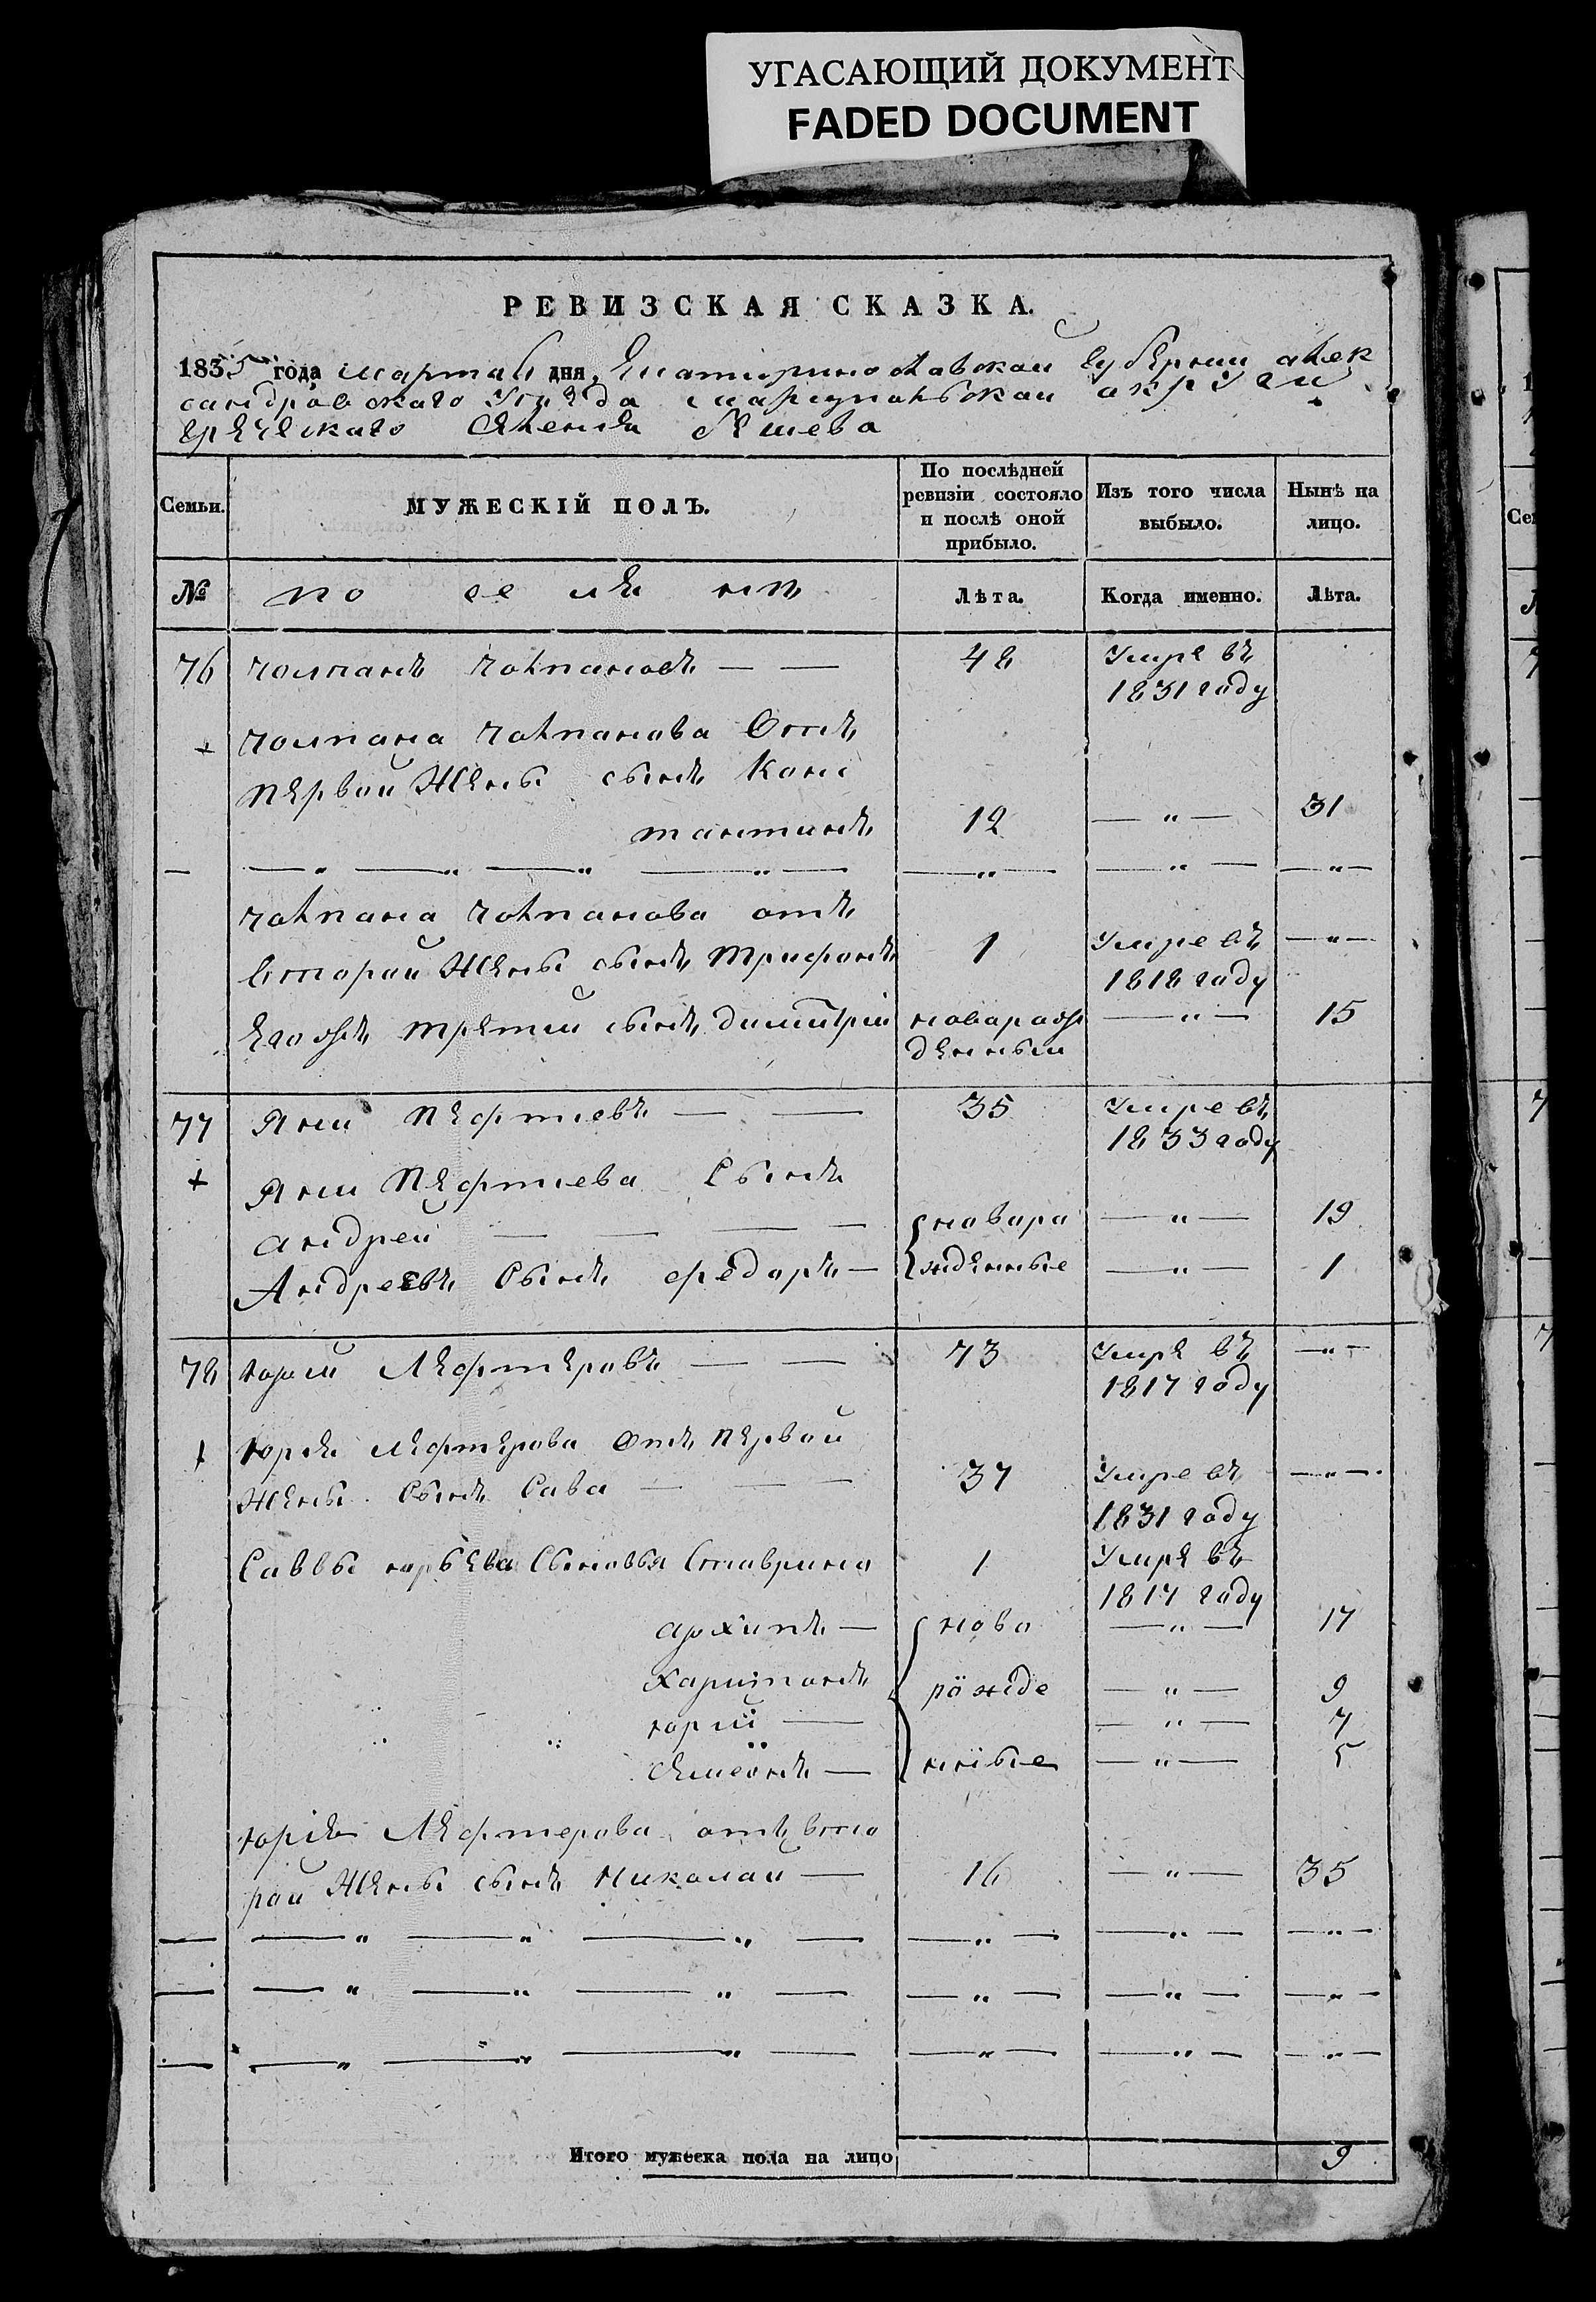 УГАСАЮЩИЙ ДОКУМЕНТ
FADED DOCUMENT
РЕВИЗСКАЯ СКАЗКА.
1835 года марта дня, Екатиринославской Губернии алек
сандровскаго Уезда мариупольской акруги
греческаго Селения
Семьи.
МУЖЕСКІЙ ПОЛЪ.
По послѣдней ревизіи состояло и послѣ оной прибыло.
Изъ того числа выбыло.
Нынѣ на лицо.
№
поселяне
Лѣта.
Когда именно.
Лѣта.
76 Чолпанъ Чолпановъ — — 48 Умре въ
1831 году
+ Чолпана Чолпанова Отъ
первой Жены сынъ Конс
тантинъ 12 — „ — 31
— — „ — „ — „ — „ — — „ — — „ — — „ —
Чолпана Чолпанова отъ
второй Жены сынъ Трифонъ 1 Умре въ — „ —
1818 году
Егожъ третий сынъ димитрій новарож — „ — 15
денный
77 Яни Пефтиевъ — — 35 Умре въ
1833 году
+ Яни Пефтиева Сынъ
андрей — — — — навара — „ — 19
Андреевъ Сынъ федоръ — жденные — „ — 1
78 юрий Лефтеровъ — — 73 Умре въ — „ —
1817 году
+ юрия Лефтерова Отъ первой
Жены Сынъ Сава — — 37 Умре въ — „ —
1831 году
Саввы юрьева Сыновья Ставрина 1 Умре въ
1817 году
архипъ — ново — „ — 17
харитонъ рожде — „ — 9
юрий — — „ — 7
Семенъ — нные — „ — 5
юрия Лефтерова отъ вто
рой Жены сынъ Николай — 16 — „ — 35
— — „ — „ — „ — — „ — — „ — — „ —
— — „ — „ — „ — — „ — — „ — — „ —
— — „ — „ — „ — — „ — — „ — — „ —
Итого мужеска пола на лицо 9